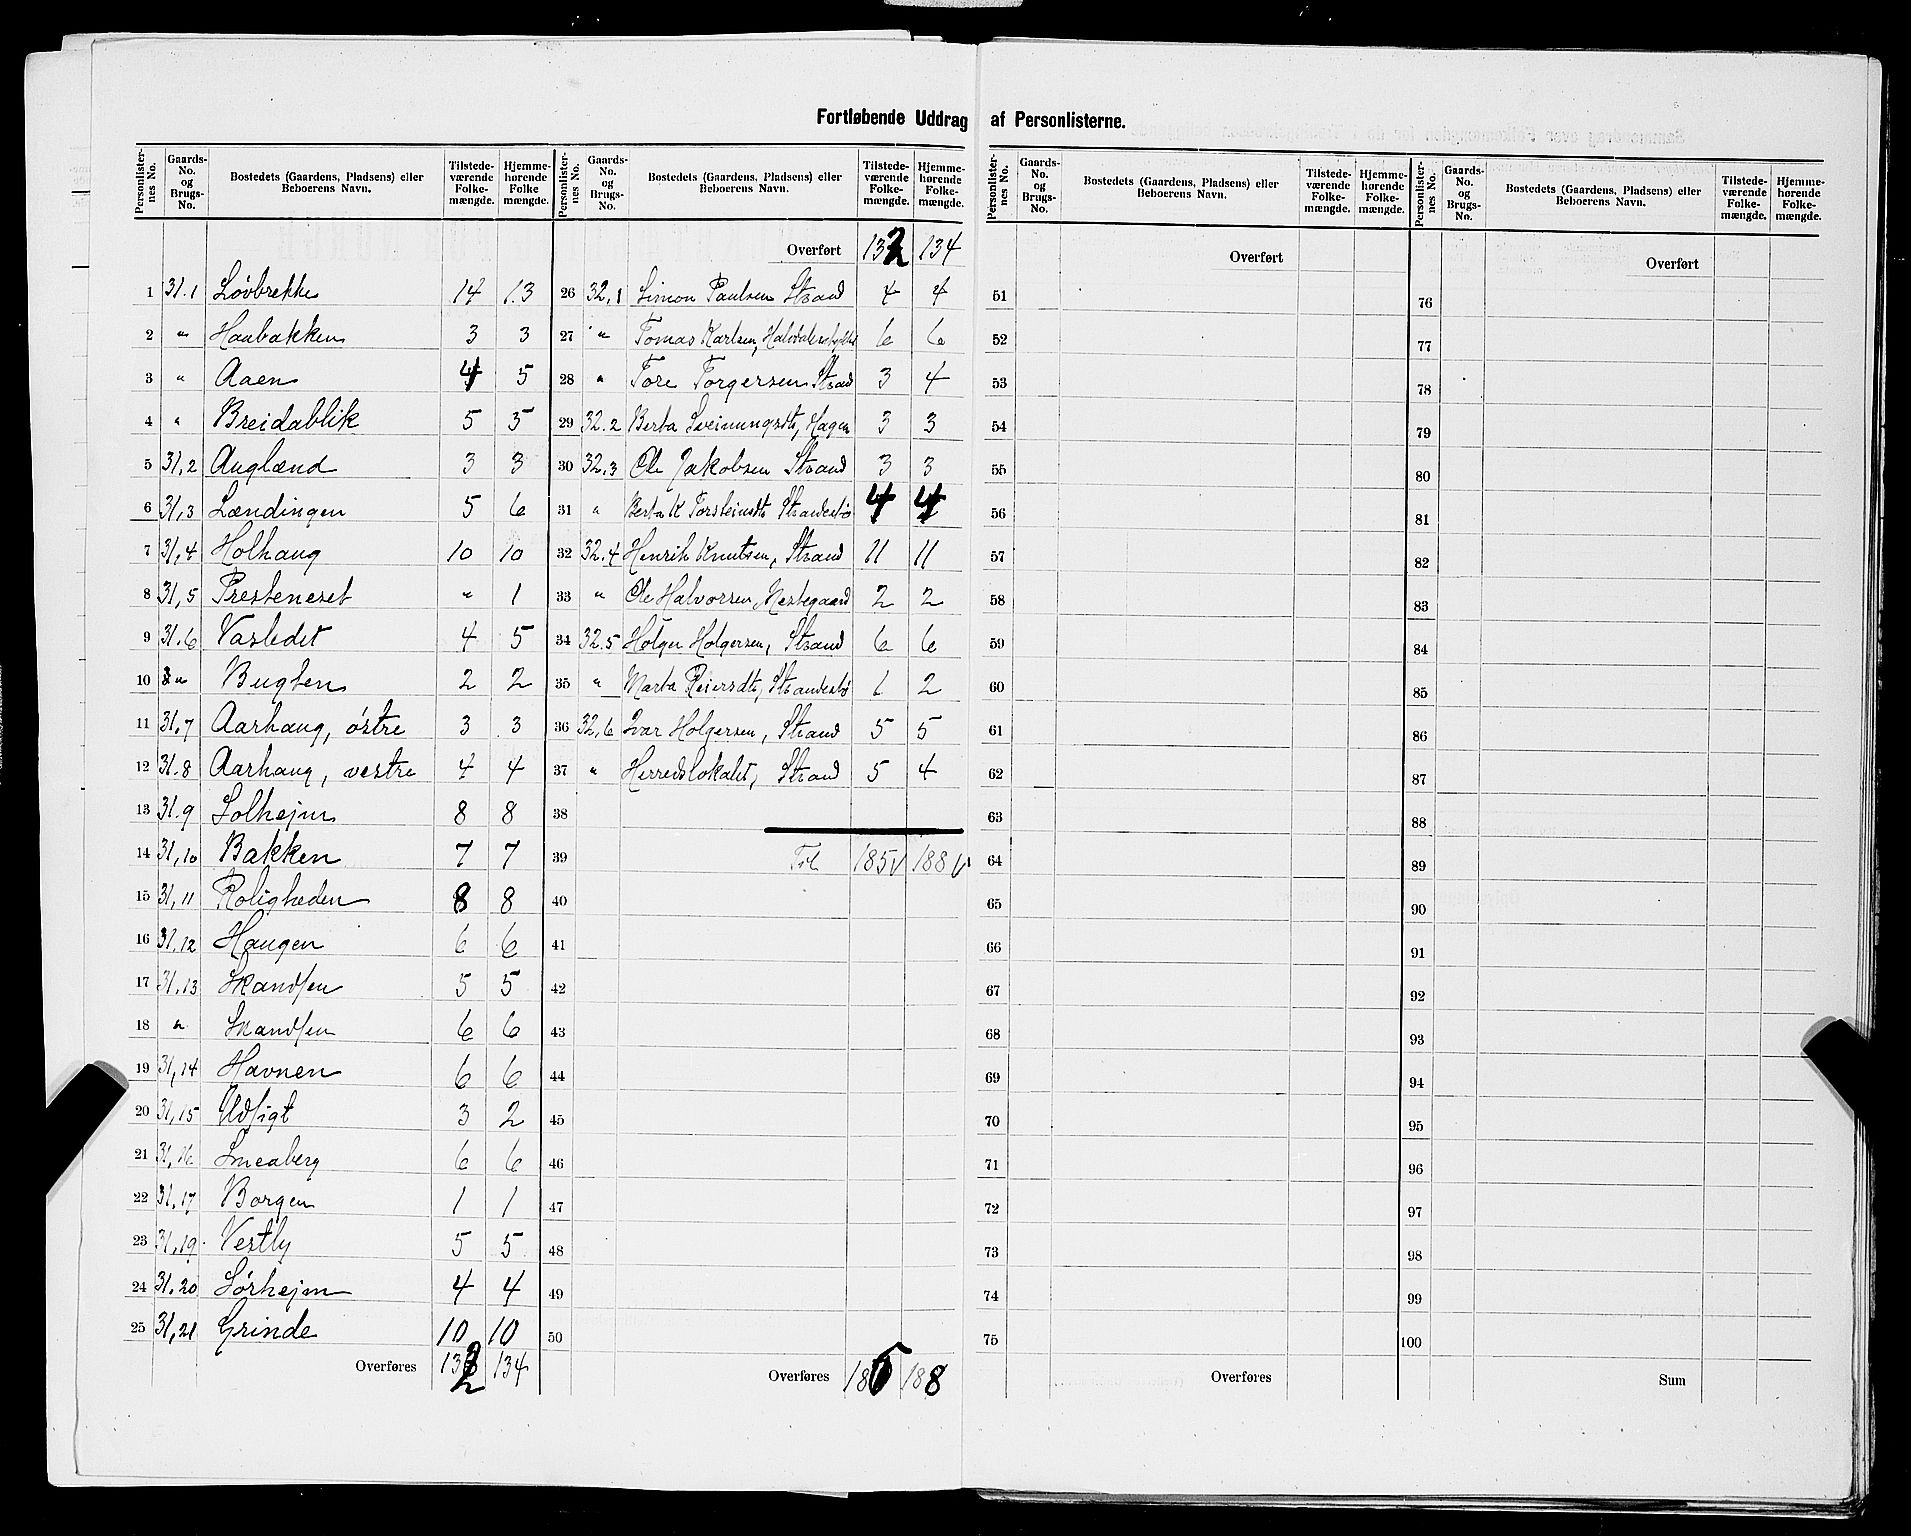 Fortløbende Uddrag af Personlisterne.
Personlister-nes No. Gaards-No. og Brugs-No. Bostedets (Gaardens, Pladsens) eller Beboerens Navn. Tilstede-værende Folke-mængde. Hjemme-hørende Folke mængde.
1 31.1 Løvbrekke 14 13
2 " Haabakken 3 3
3 " Aaen 4 5
4 " Breidablik 5 5
5 31,2 Auglænd 3 3
6 31,3 Lændingen 5 6
7 31,4 Holhaug 10 10
8 31,5 Presteneset " 1
9 31.6 Vasledet 4 5
10 " Bugten 2 2
11 31.7 Aarhaug, østre 3 3
12 31.8 Aarhaug, vestre 4 4
13 31.9 Solhejm 8 8
14 31,10 Bakken 7 7
15 31,11 Roligheden 8 8
16 31.12 Haugen 6 6
17 31.13 Skandsen 5 5
18 " Skandsen 6 6
19 31,14 Havnen 6 6
20 31,15 Udsigt 3 2
21 31,16 Smeaberg 6 6
22 31.17 Borgen 1 1
23 31,19 Vestly 5 5
24 31.20 Sørhejm 4 4
25 31,21 Grinde 10 10
Overføres 132 134
Personlister-nes No. Gaards-No. og Brugs-No. Bostedets (Gaardens, Pladsens) eller Beboerens Navn. Tilstede-værende Folke-mængde. Hjemme-hørende Folke-mængde.
Overført 132 134
26 32,1 Simon Paulsen Strand 4 4
27 " Tomas Karlsen, 6 6
28 " Tore Torgersen Strand 3 4
29 32.2 Berta Sveinungsdt, Hagen 3 3
30 32.3 Ole Jakobsen Strand 3 3
31 " Berta K Torsteinsdt Strandestø 4 4
32 32.4 Henrik Knutsen, Strand 11 11
33 " Ole Halvorsen, Nestegaard 2 2
34 32.5 Holger Holgersen, Strand 6 6
35 " Marta Reiersdt, Strandestø 1 2
36 32,6 Ivar Holgersen, Strand 5 5
37 " Herredslokalet, Strand 5 4
38
39 Til 185 188
40
41
42
43
44
45
46
47
48
49
50
Overføres 185 188
Personlister-nes No. Gaards-No. og Brugs-No. Bostedets (Gaardens, Pladsens) eller Beboerens Navn. Tilstede-værende Folke-mængde. Hjemme-hørende Folke-mængde.
Overført
51
52
53
54
55
56
57
58
59
60
61
62
63
64
65
66
67
68
69
70
71
72
73
74
75
Overføres
Personlister-nes No. Gaards-No. og Brugs-No. Bostedets (Gaardens, Pladsens) eller Beboerens Navn. Tilstede-værende Folke-mængde. Hjemme-hørende Folke-mængde.
Overført
76
77
78
79
80
81
82
83
84
85
86
87
88
89
90
91
92
93
94
95
96
97
98
99
100
Sum